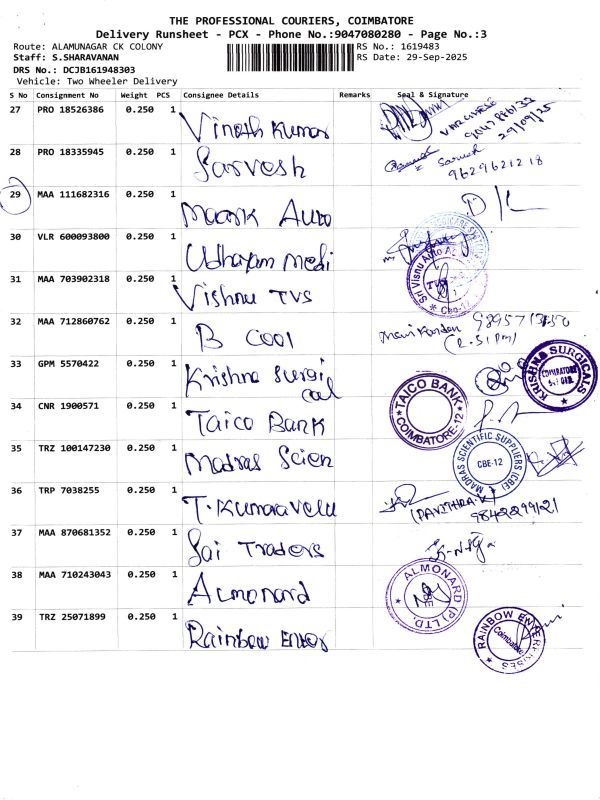 THE PROFESSIONAL COURIERS, COIMBATORE
Delivery Runsheet - PCX - Phone No.:9047080280 - Page No.:3
Route: ALAMUNAGAR CK COLONY
RS No.: 1619483
Staff: S.SHARAVANAN
RS Date: 29-Sep-2025
DRS No.: DCJB161948303
Vehicle: Two Wheeler Delivery
S No Consignment No Weight PCS Consignee Details Remarks Seal & Signature
27 PRO 18526386 0.250 1 Vinoth Kumar
29/09/25
28 PRO 18335945 0.250 1 Sarvesh
9629621218
29 MAA 111682316 0.250 1 Maark Auto
30 VLR 600093800 0.250 1 Udhayam Medi
31 MAA 703902318 0.250 1 Vishnu TVS
Sri Visnu Auto
TVS
Cbe-12
32 MAA 712860762 0.250 1 B Cool
33 GPM 5570422 0.250 1 Krishna Surgical
KRISHNA SURGICALS
COIMBATORE
34 CNR 1900571 0.250 1 Taico Bank
TAICO BANK
COIMBATORE-12
35 TRZ 100147230 0.250 1 Madras Scien
MADRAS SCIENTIFIC SUPPLIERS (CBE)
CBE-12
36 TRP 7038255 0.250 1 T.Kumaravelu
(PAVITHRA.V)
37 MAA 870681352 0.250 1 Sai Traders
38 MAA 710243043 0.250 1 Almonard
ALMONARD (P) LTD.
39 TRZ 25071899 0.250 1 Rainbow Enter
RAINBOW ENTERPRISES
Coimbatore